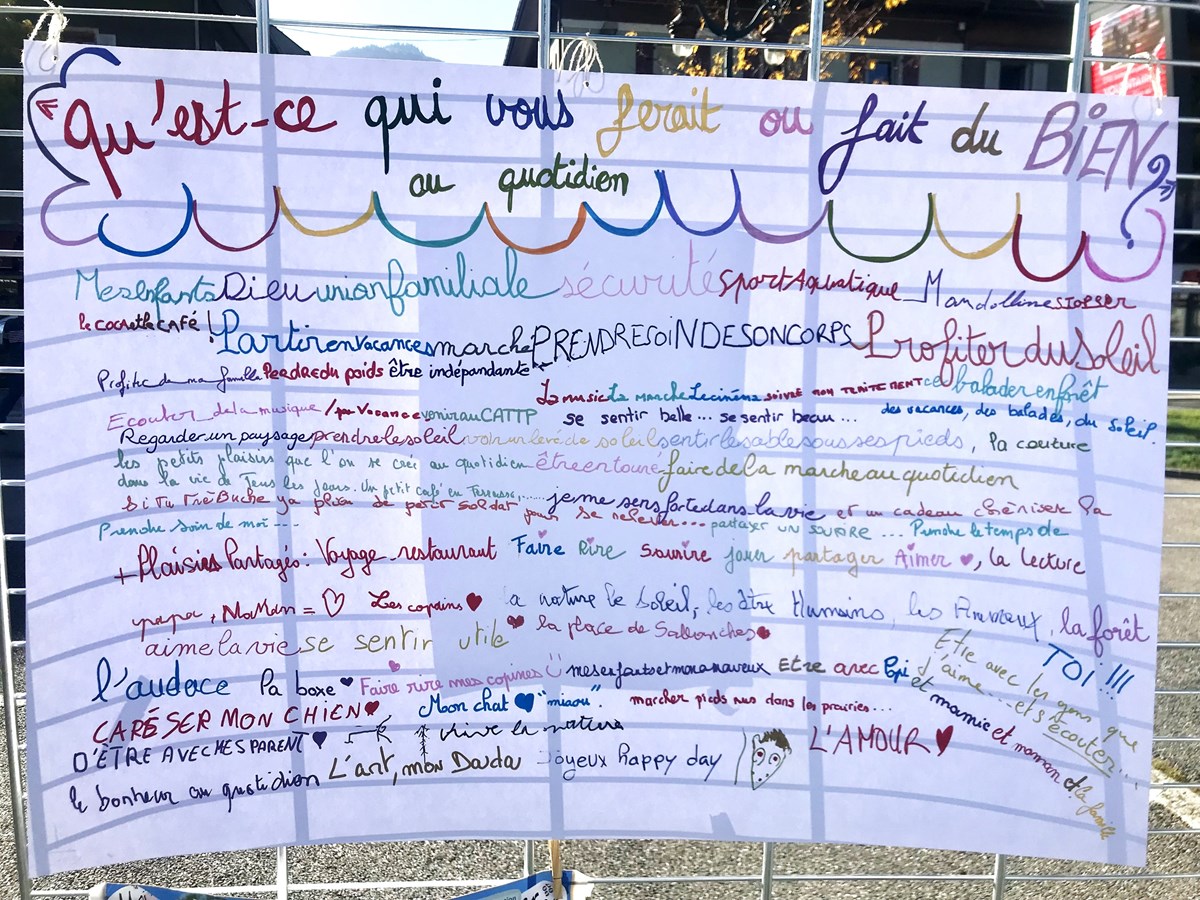 « Qu'est-ce qui vous ferait ou fait du BiEN
au quotidien ? »
Mes enfants Dieu union familiale sécurité Sport Aquatique Mandolline STOPSER
le COCA et le CAFÉ ! Partir en vacances marche PRENDRE SOiN DE SON CORPS Profiter du Soleil
Profiter de ma famille Perdre du poids être indépendante
La music La marche Le cinéma SUIVRE MON TRAITEMENT se balader en forêt
Ecouter de la musique / partir Vacance venir au CATTP se sentir belle... se sentir beau... des vacances, des balades, du soleil.
Regarder un paysage prendre le soleil voir un levé de soleil sentir le sable sous ses pieds, la couture
les petits plaisirs que l'on se crée au quotidien être entouré faire de la marche au quotidien
dans la vie de Tous les Jours. Un petit café en Terrasse,......
Si Tu TréBuche ya plein de petit Soldat pour se relever... je me sens forte dans la vie et un cadeau chérisser la
Prendre soin de moi --- partager UN SOURIRE ... Prendre le temps de
+ Plaisirs Partagés : Voyage - restaurant Faire Rire Sourire jouer partager Aimer ♥, la lecture
papa, MaMan = ♡ Les copains ♥ la nature le Soleil, les être Humains, les Animaux, la forêt
aime la vie se sentir utile ♥ la place de Sallanches ♥
l'audace la boxe ♥ Faire rire mes copines mes enfants et mon anaveux Etre avec Epi et mamie et maman et la famille
Etre avec les gens que j'aime... et s'écouter...
TOI !!!
CARÉSER MON CHIEN ♥ Mon chat ♥ "miaou". marcher pieds nus dans les prairies...
D'ÊTRE AVEC MES PARENT ♥ vive la nature
L'AMOUR ♥
le bonheur au quotidien L'art, mon Dada Joyeux happy day